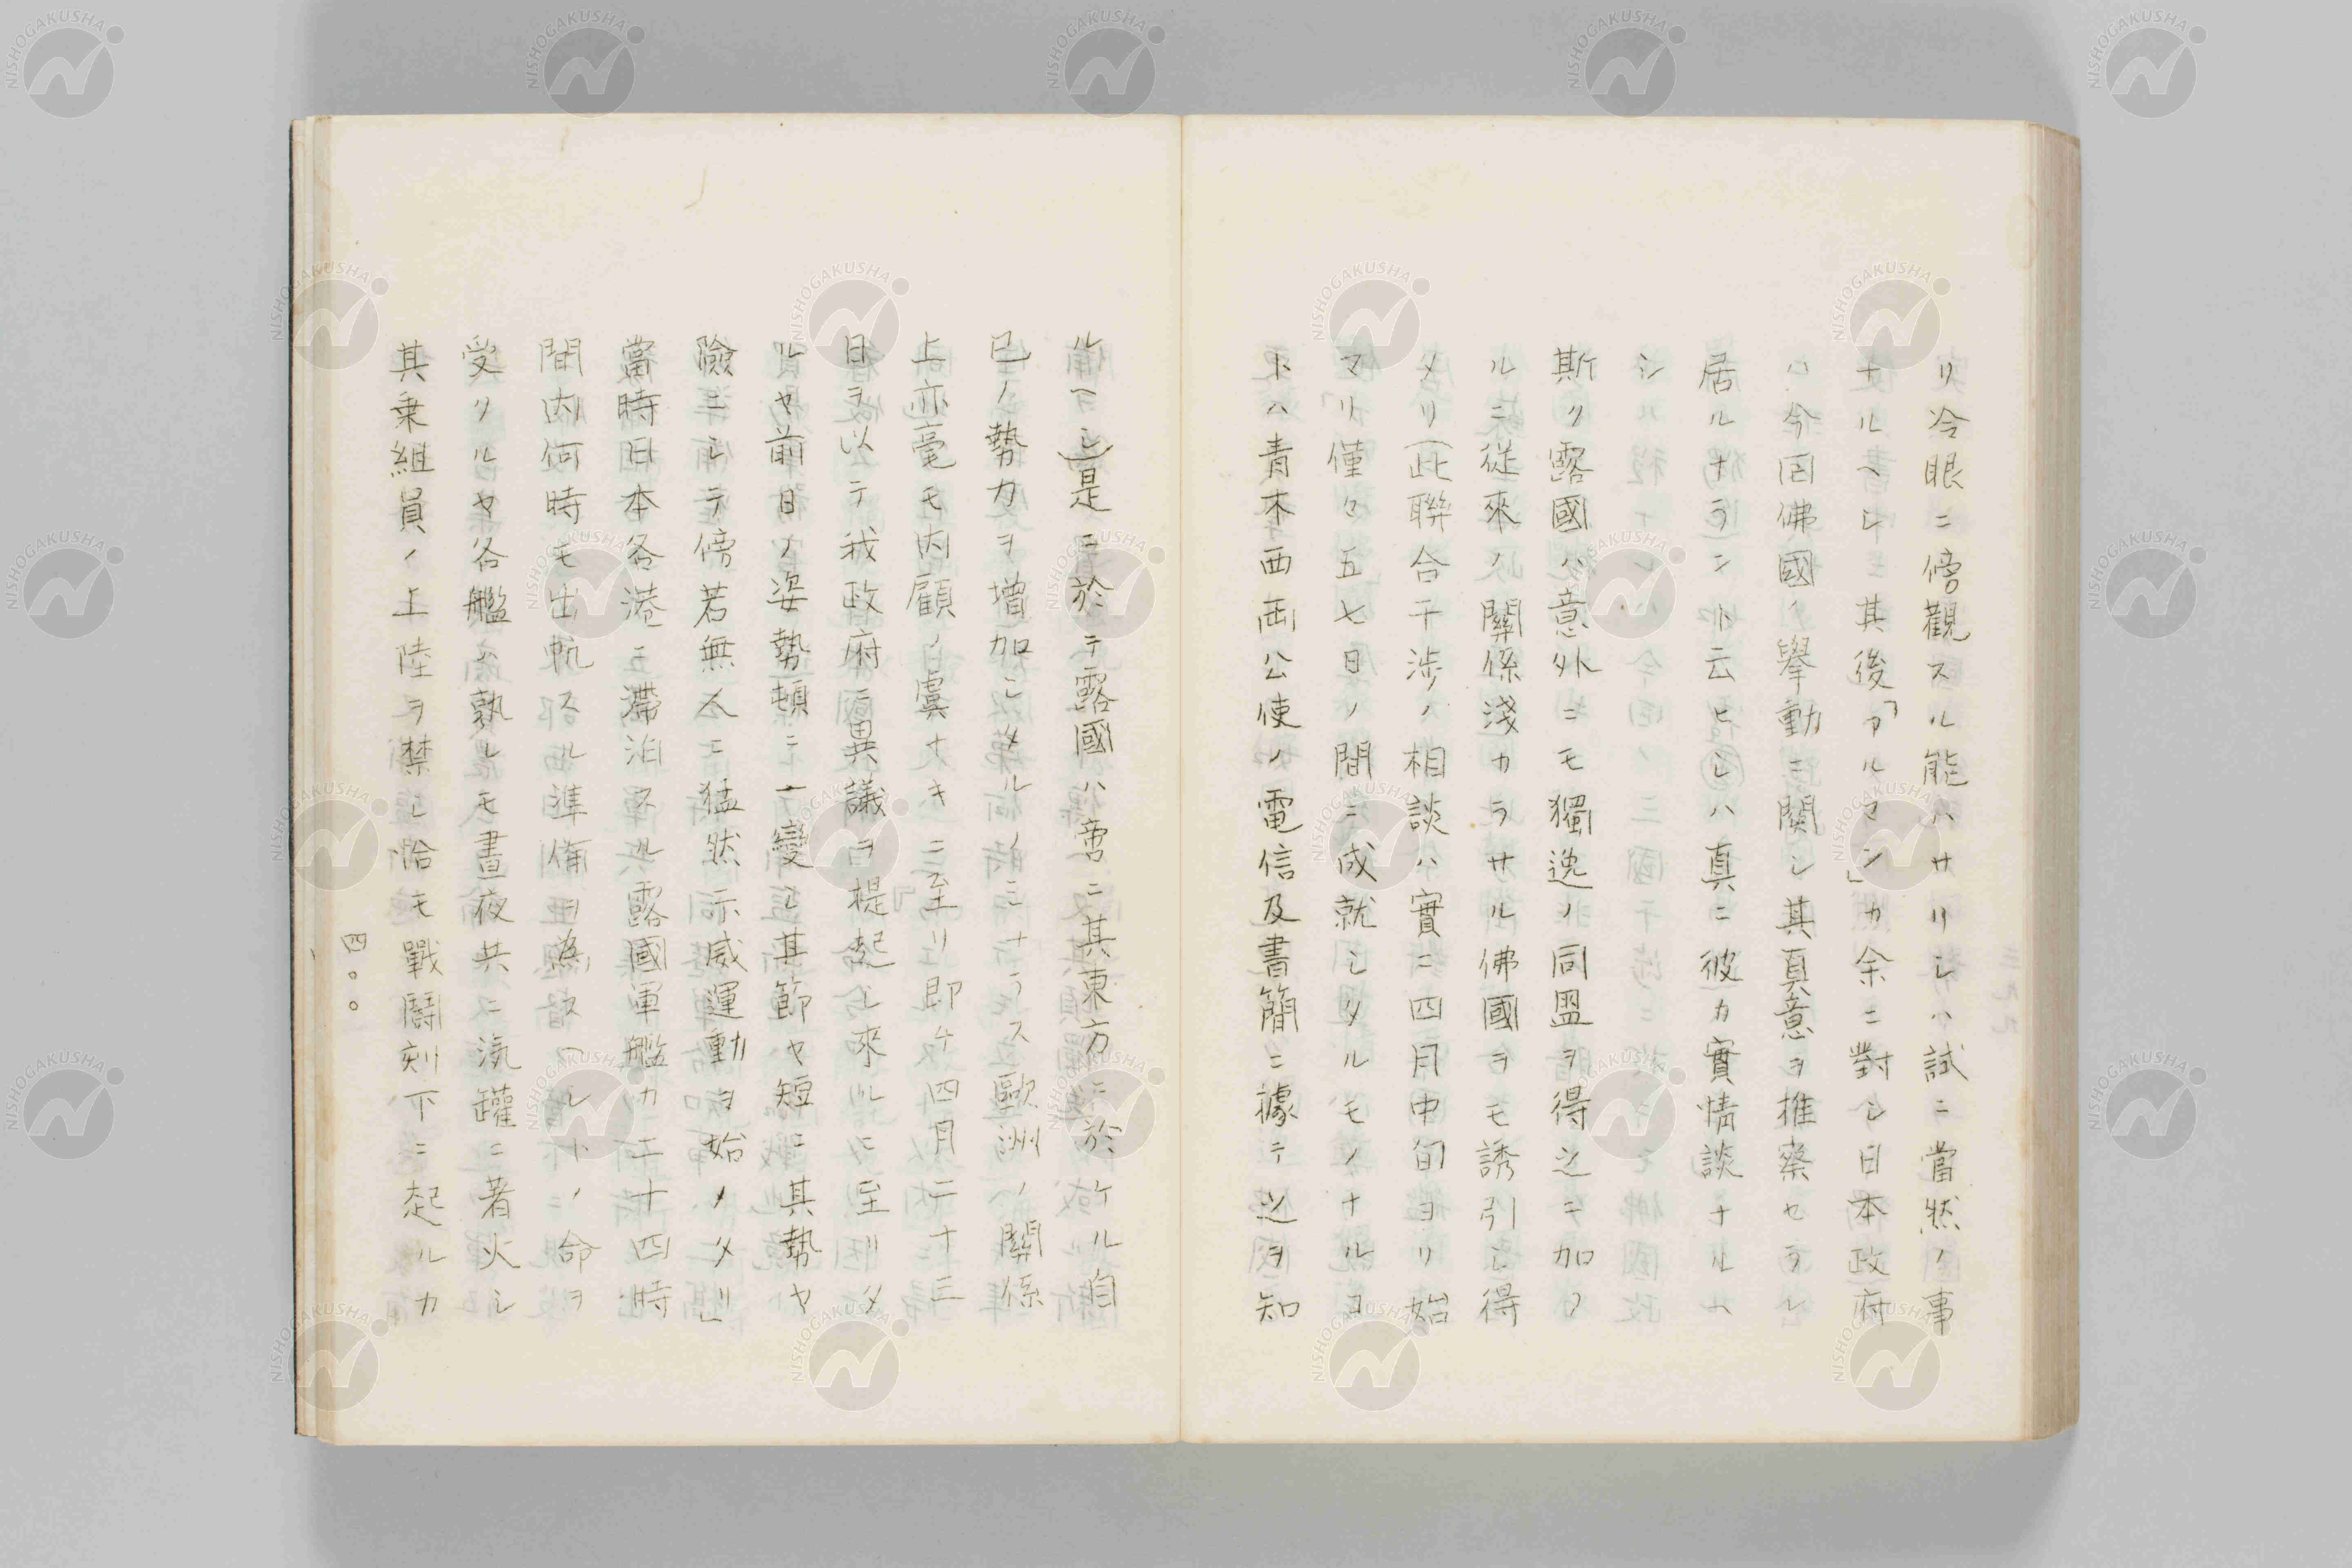 リ冷眼ニ傍觀スル能ハサリシハ試ニ當然ノ事
ナルヘシ其後「アルマン」カ余ニ對シ日本政府
ハ今回佛國ノ擧動ニ関シ其真意ヲ推察セラレ
居ルナラント云ヒシハ真ニ彼カ實情談ナルヘ
シ
斯ク露國ハ意外ニモ獨逸ノ同盟ヲ得之ニ加フ
ルニ従來ノ關係淺カラサル佛國ヲモ誘引シ得
タリ(此聯合干渉ノ相談ハ實ニ四月中旬ヨリ始
マリ僅々五七日ノ間ニ成就シタルモノナルコ
トハ青木西両公使ノ電信及書簡ニ據テ之ヲ知
ルヘシ)是ニ於テ露國ハ啻ニ其東方ニ於ケル自
己ノ勢力ヲ増加シタルノミナラス歐洲ノ關係
上亦毫モ内顧ノ虞ナキニ至リ即チ四月二十三
日ヲ以テ我政府ニ異議ヲ提起シ來ルニ至リタ
ルヤ前日ノ姿勢頓ニ一變シ其節ヤ短ニ其勢ヤ
險ニシテ傍若無人ニ猛然示威運動ヲ始メタリ」
當時日本各港ニ滯泊スル露國軍艦カ二十四時
間内何時モ出帆スル準備ヲ為スヘシトノ命ヲ
受クルヤ各艦ハ孰レモ晝夜共ニ滊罐ニ著火シ
其乗組員ノ上陸ヲ禁シ恰モ戰鬪刻下ニ起ルカ
四〇〇
NISHOGAKUSHA